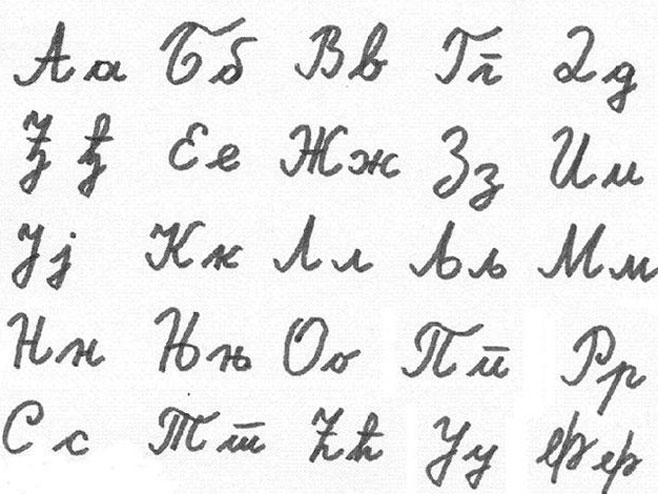 А а Б б В в Г г Д д
Ђ ђ Е е Ж ж З з И и
Ј ј К к Л л Љ љ М м
Н н Њ њ О о П п Р р
С с Т т Ћ ћ У у Ф ф